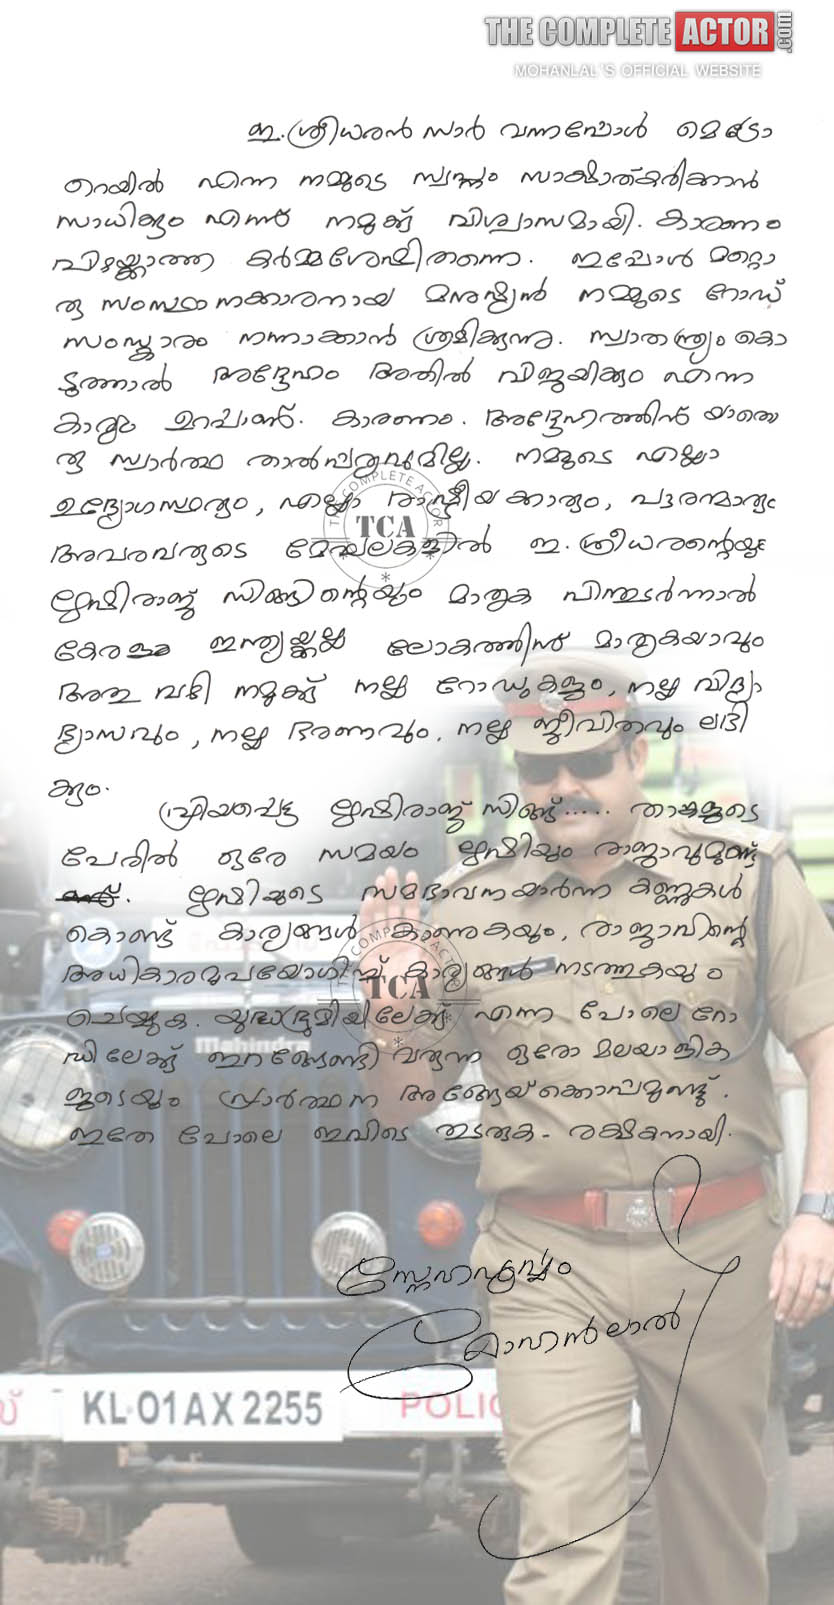 THE COMPLETE ACTOR.com
MOHANLAL'S OFFICIAL WEBSITE
ഇ.ശ്രീധരൻ സാർ വന്നപ്പോൾ മെട്രോ
റെയിൽ എന്ന നമ്മുടെ സ്വപ്നം സാക്ഷാത്കരിക്കാൻ
സാധിക്കും എന്ന് നമുക്ക് വിശ്വാസമായി. കാരണം
പിഴയ്ക്കാത്ത കർമ്മശേഷിതന്നെ. ഇപ്പോൾ മറ്റൊ
രു സംസ്ഥാനക്കാരനായ മനുഷ്യൻ നമ്മുടെ റോഡ്
സംസ്ക്കാരം നന്നാക്കാൻ ശ്രമിക്കുന്നു. സ്വാതന്ത്ര്യം കൊ
ടുത്താൽ അദ്ദേഹം അതിൽ വിജയിക്കും എന്ന
കാര്യം ഉറപ്പാണ്. കാരണം. അദ്ദേഹത്തിന് യാതൊ
രു സ്വാർത്ഥ താൽപ്പര്യവുമില്ല. നമ്മുടെ എല്ലാ
ഉദ്യോഗസ്ഥരും, എല്ലാ രാഷ്ട്രീയക്കാരും, പൗരന്മാരും
അവരവരുടെ മേഖലകളിൽ ഇ.ശ്രീധരന്റെയും
ഋഷിരാജ് സിങ്ങിന്റെയും മാതൃക പിന്തുടർന്നാൽ
കേരളം ഇന്ത്യയ്ക്കല്ല ലോകത്തിന് മാതൃകയാവും
അതു വഴി നമുക്ക് നല്ല റോഡുകളും, നല്ല വിദ്യാ
ഭ്യാസവും, നല്ല ഭരണവും. നല്ല ജീവിതവും ലഭി
ക്കും.
പ്രിയപ്പെട്ട ഋഷിരാജ് സിങ്ങ്..... താങ്കളുടെ
പേരിൽ ഒരേ സമയം ഋഷിയും രാജാവുമുണ്ട്
. ഋഷിയുടെ സമഭാവനയാർന്ന കണ്ണുകൾ
കൊണ്ട് കാര്യങ്ങൾ കാണുകയും, രാജാവിന്റെ
അധികാരമുപയോഗിച്ച് കാര്യങ്ങൾ നടത്തുകയും
ചെയ്യുക. യുദ്ധഭൂമിയിലേക്ക് എന്ന പോലെ റോ
ഡിലേക്ക് ഇറങ്ങേണ്ടി വരുന്ന ഒരോ മലയാളിക
ളുടെയും പ്രാർത്ഥന അങ്ങേയ്ക്കൊപ്പമുണ്ട്.
ഇതേ പോലെ ഇവിടെ തുടരുക- രക്ഷകനായി.
സ്നേഹപൂർവ്വം
മോഹൻലാൽ
THE COMPLETE ACTOR
TCA
THE COMPLETE ACTOR
TCA
Mahindra
KL·01AX 2255
POLIC